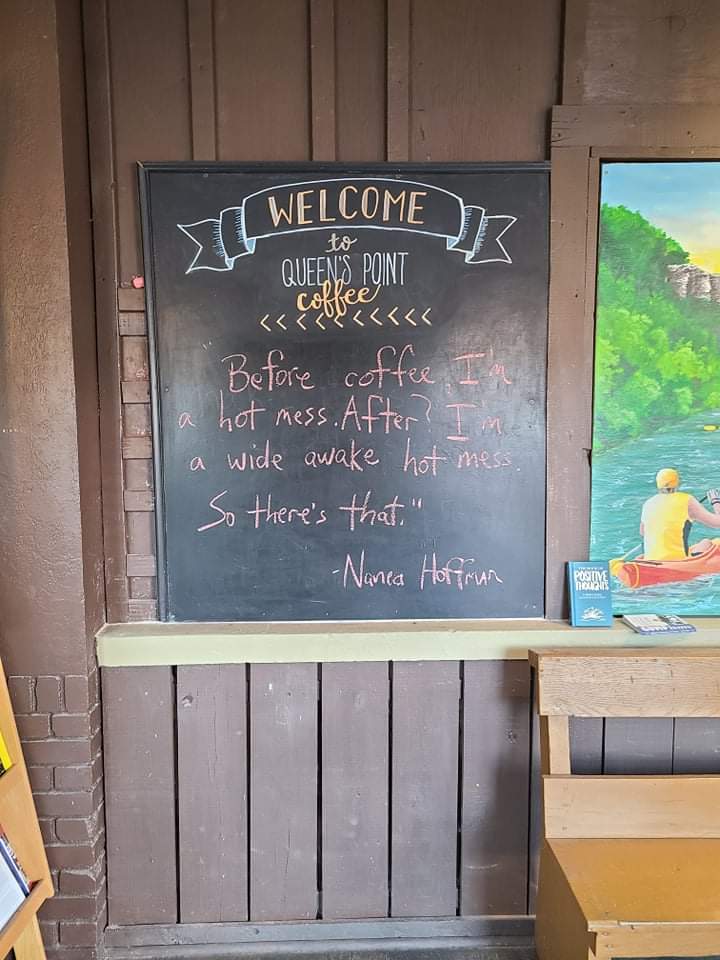 WELCOME
to
QUEEN'S POINT
coffee
<<<<<<<<<
"Before coffee, I'm
a hot mess. After? I'm
a wide awake hot mess.
So there's that."
-Nanea Hoffman
POSITIVE
THOUGHTS